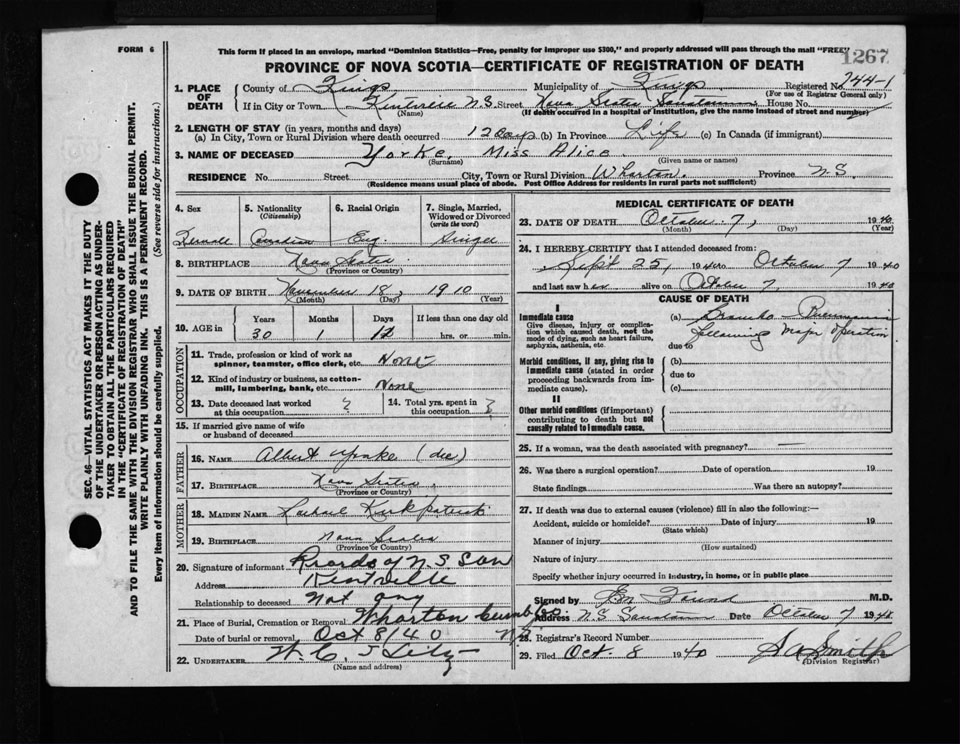 FORM 6
This form if placed in an envelope, marked "Dominion Statistics—Free, penalty for improper use $300," and properly addressed will pass through the mail "FREE"
1267
PROVINCE OF NOVA SCOTIA—CERTIFICATE OF REGISTRATION OF DEATH
1. PLACE OF DEATH
County of Kings Municipality of Kings Registered No. 744-1
(For use of Registrar General only)
If in City or Town Kentville N.S. Street Nova Scotia House No.
(Name) (If death occurred in a hospital or institution, give the name instead of street and number)
2. LENGTH OF STAY (in years, months and days)
(a) In City, Town or Rural Division where death occurred 12 Days (b) In Province Life (c) In Canada (if immigrant)
3. NAME OF DECEASED Yorke, Miss Alice.
(Surname) (Given name or names)
RESIDENCE No. Street City, Town or Rural Division Wharton. Province N.S.
(Residence means usual place of abode. Post Office Address for residents in rural parts not sufficient)
4. Sex
Female
5. Nationality
(Citizenship)
Canadian
6. Racial Origin
Eng.
7. Single, Married, Widowed or Divorced
(write the word)
Single
8. BIRTHPLACE Nova Scotia
(Province or Country)
9. DATE OF BIRTH November 18, 1910
(Month) (Day) (Year)
10. AGE in
Years Months Days If less than one day old
30 1 hrs. or min.
OCCUPATION
11. Trade, profession or kind of work as spinner, teamster, office clerk, etc. None
12. Kind of industry or business, as cotton-mill, lumbering, bank, etc. None
13. Date deceased last worked at this occupation ?
14. Total yrs. spent in this occupation ?
15. If married give name of wife or husband of deceased
FATHER
16. NAME Albert Yorke (dec)
17. BIRTHPLACE Nova Scotia
(Province or Country)
MOTHER
18. MAIDEN NAME Kirkpatrick
19. BIRTHPLACE Nova Scotia
(Province or Country)
20. Signature of informant Records of N.S. San
Address Kentville
Relationship to deceased Not any
21. Place of Burial, Cremation or Removal Wharton
Date of burial or removal Oct 8/40 N.S.
22. UNDERTAKER
(Name and address)
MEDICAL CERTIFICATE OF DEATH
23. DATE OF DEATH October 7, 1940
(Month) (Day) (Year)
24. I HEREBY CERTIFY that I attended deceased from:
Sept 25, 1940 to October 7 1940
and last saw her alive on October 7 1940
CAUSE OF DEATH
I
Immediate cause
Give disease, injury or complication which caused death, not the mode of dying, such as heart failure, asphyxia, asthenia, etc.
(a) Broncho-Pneumonia
following Major operation
due to
Morbid conditions, if any, giving rise to immediate cause (stated in order proceeding backwards from immediate cause).
(b)
due to
(c)
II
Other morbid conditions (if important) contributing to death but not causally related to immediate cause.
25. If a woman, was the death associated with pregnancy?
26. Was there a surgical operation? Date of operation 19
State findings Was there an autopsy?
27. If death was due to external causes (violence) fill in also the following:—
Accident, suicide or homicide? Date of injury 19
(State which)
Manner of injury
(How sustained)
Nature of injury
Specify whether injury occurred in industry, in home, or in public place
Signed by M.D.
Address: N.S. Date October 7 1940
28. Registrar's Record Number
29. Filed Oct. 8 1940 S A Smith
(Division Registrar)
SEC. 46—VITAL STATISTICS ACT MAKES IT THE DUTY
OF THE UNDERTAKER OR PERSON ACTING AS UNDER-
TAKER TO OBTAIN ALL THE PARTICULARS REQUIRED
IN THE "CERTIFICATE OF REGISTRATION OF DEATH"
AND TO FILE THE SAME WITH THE DIVISION REGISTRAR WHO SHALL ISSUE THE BURIAL PERMIT.
WRITE PLAINLY WITH UNFADING INK. THIS IS A PERMANENT RECORD.
Every item of information should be carefully supplied. (See reverse side for instructions.)